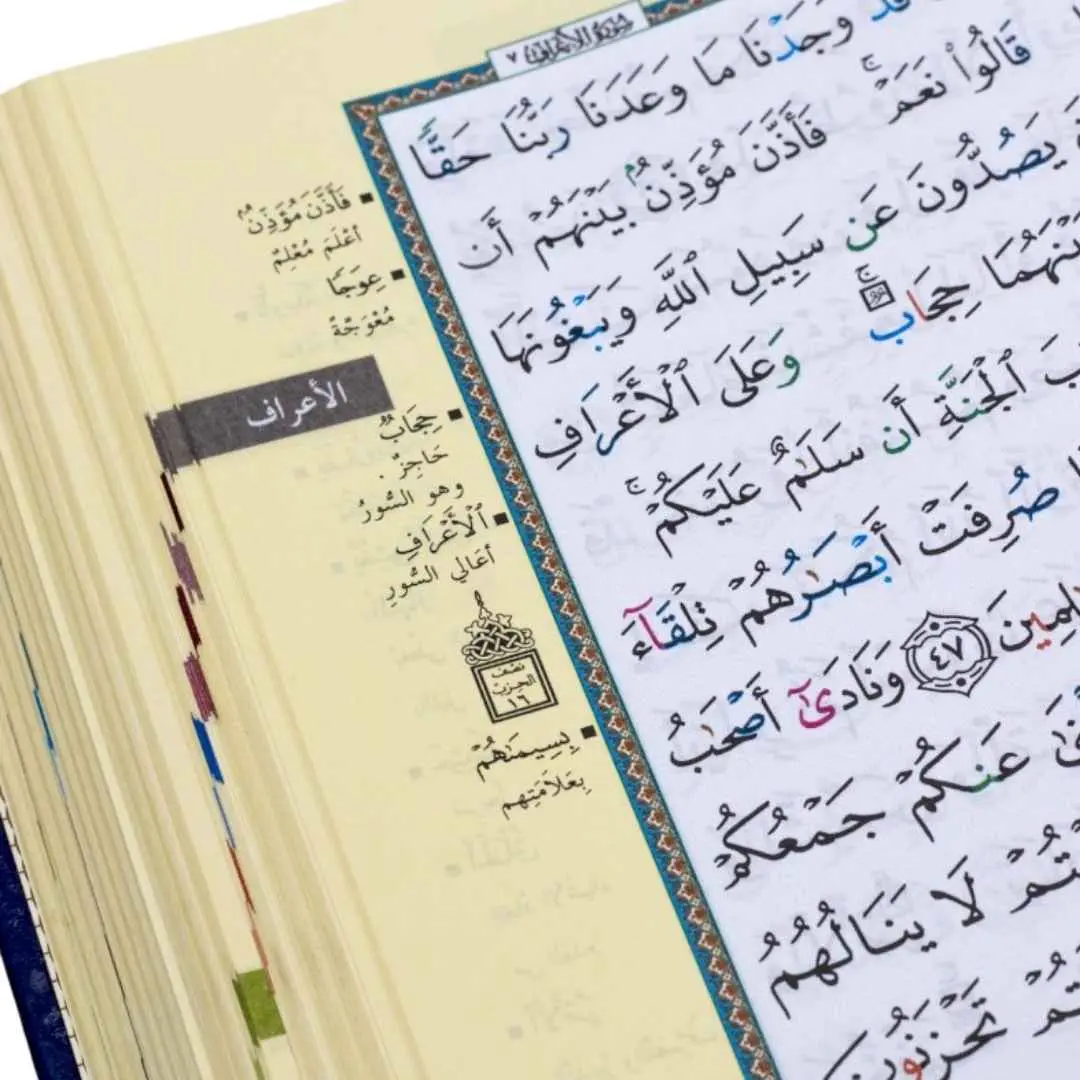 سُورَةُ الأَعْرَافِ ٧
قَدْ وَجَدْنَا مَا وَعَدَنَا رَبُّنَا حَقًّا
قَالُواْ نَعَمْ ۚ فَأَذَّنَ مُؤَذِّنُۢ بَيْنَهُمْ أَن
يَصُدُّونَ عَن سَبِيلِ ٱللَّهِ وَيَبْغُونَهَا
حِجَابٌ ۚ وَعَلَى ٱلْأَعْرَافِ
ٱلْجَنَّةِ أَن سَلَٰمٌ عَلَيْكُمْ ۚ
صُرِفَتْ أَبْصَٰرُهُمْ تِلْقَآءَ
٤٧ وَنَادَىٰٓ أَصْحَٰبُ
عَنكُمْ جَمْعُكُمْ
لَا يَنَالُهُمُ
تَحْزَنُونَ
▪ فَأَذَّنَ مُؤَذِّنُۢ
أعْلَمَ مُعْلِمٌ
▪ عِوَجًا
مُعْوَجَّةً
الأعراف
▪ حِجَابٌ
حَاجِزٌ.
وهو السُّورُ
▪ ٱلْأَعْرَافِ
أعَالي السُّورِ
نصف
الحزب
١٦
▪ بِسِيمَٰهُمْ
بِعَلَامَتِهِم